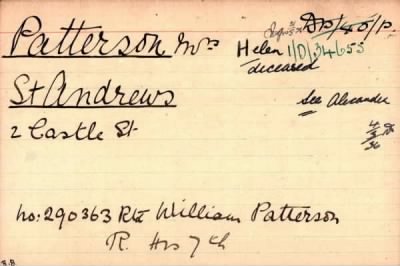 Patterson Mrs
Helen 1/D/34655
deceased
St Andrews
See Alexander
2 Castle St
no: 290363 Pte William Patterson
R. Hrs 7th